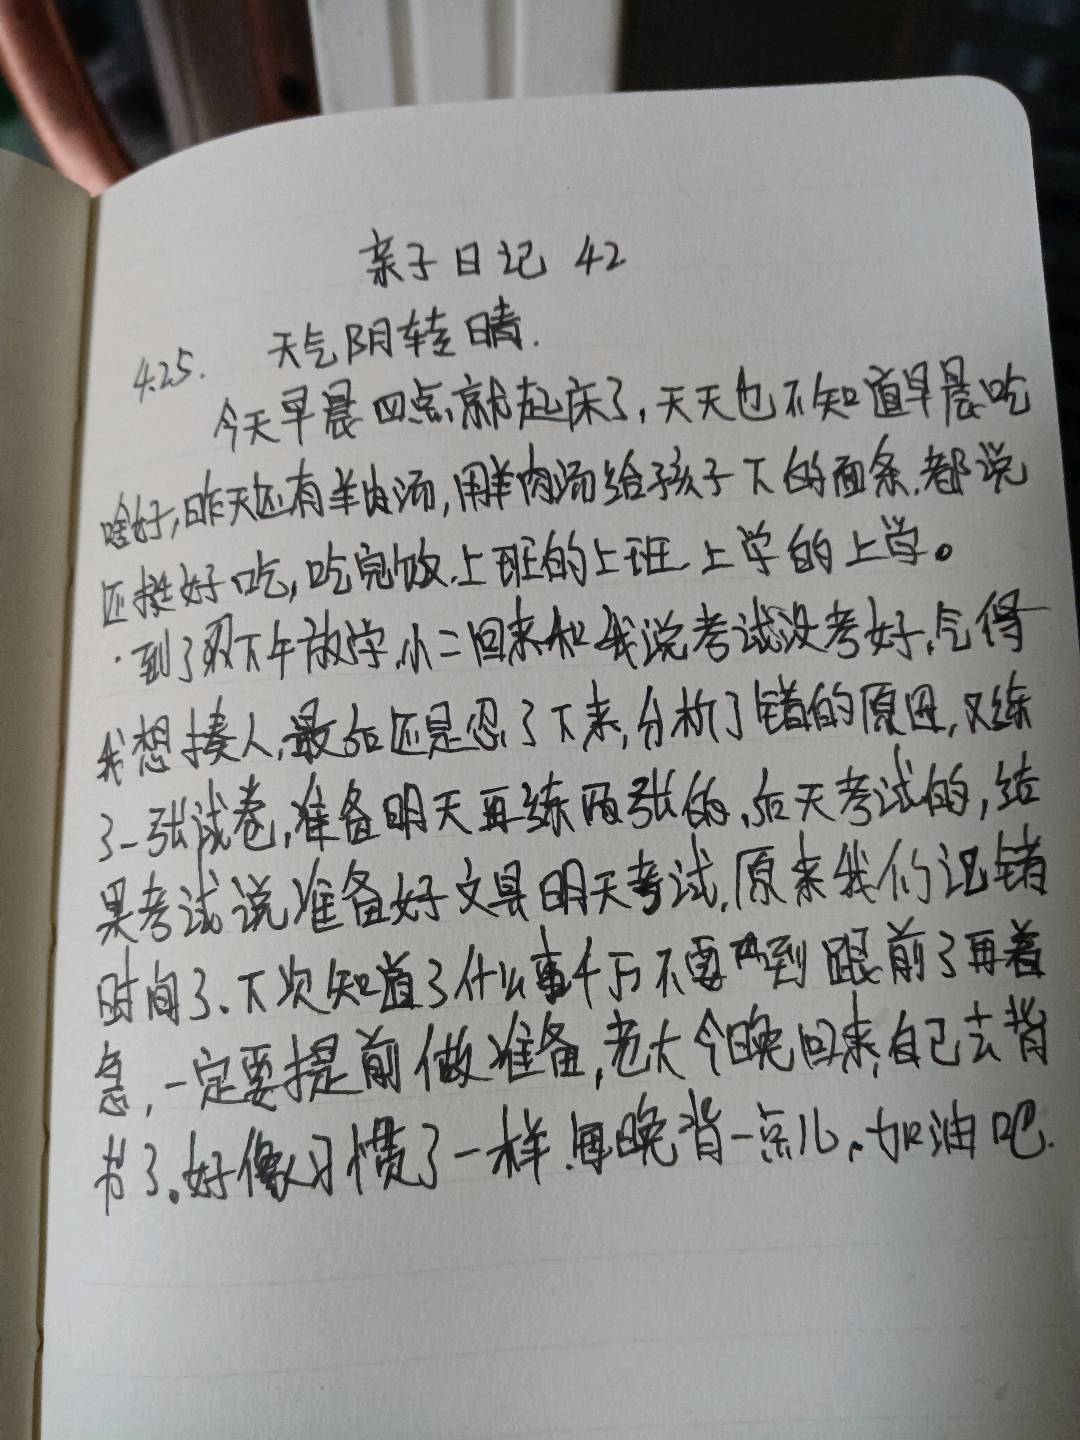 亲子日记 42
4.25. 天气阴转晴.
今天早晨四点就起床了,天天也不知道早晨吃
啥好,昨天还有羊肉汤,用羊肉汤给孩子下的面条.都说
还挺好吃,吃完饭.上班的上班.上学的上学。
到了下午放学.小二回来和我说考试没考好,气得
我想揍人,最后还是忍了下来,分析了错的原因,又练
了一张试卷,准备明天再练两张的,后天考试的,结
果考试说准备好文具明天考试,原来我们记错
时间了.下次知道了什么事千万不要到跟前了再着
急,一定要提前做准备,老大今晚回来,自己去背
书了。好像习惯了一样.每晚背一点儿.加油吧.